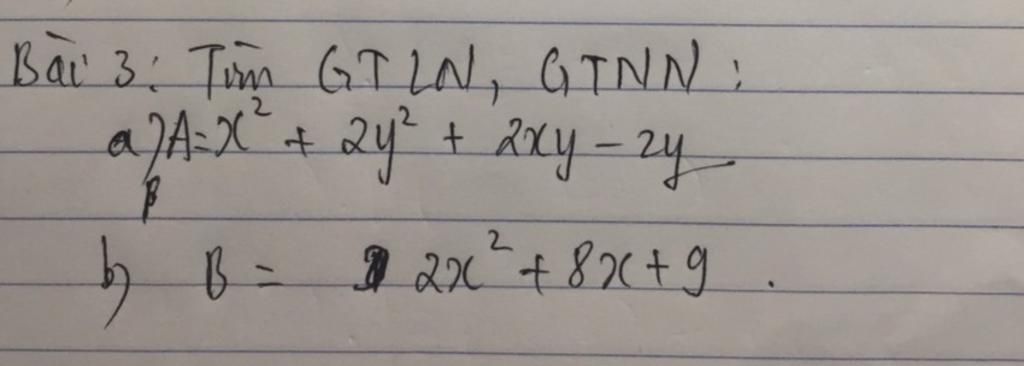 Bài 3: Tìm GTLN, GTNN:
a) A = x² + 2y² + 2xy - 2y
b) B = 2x² + 8x + 9.